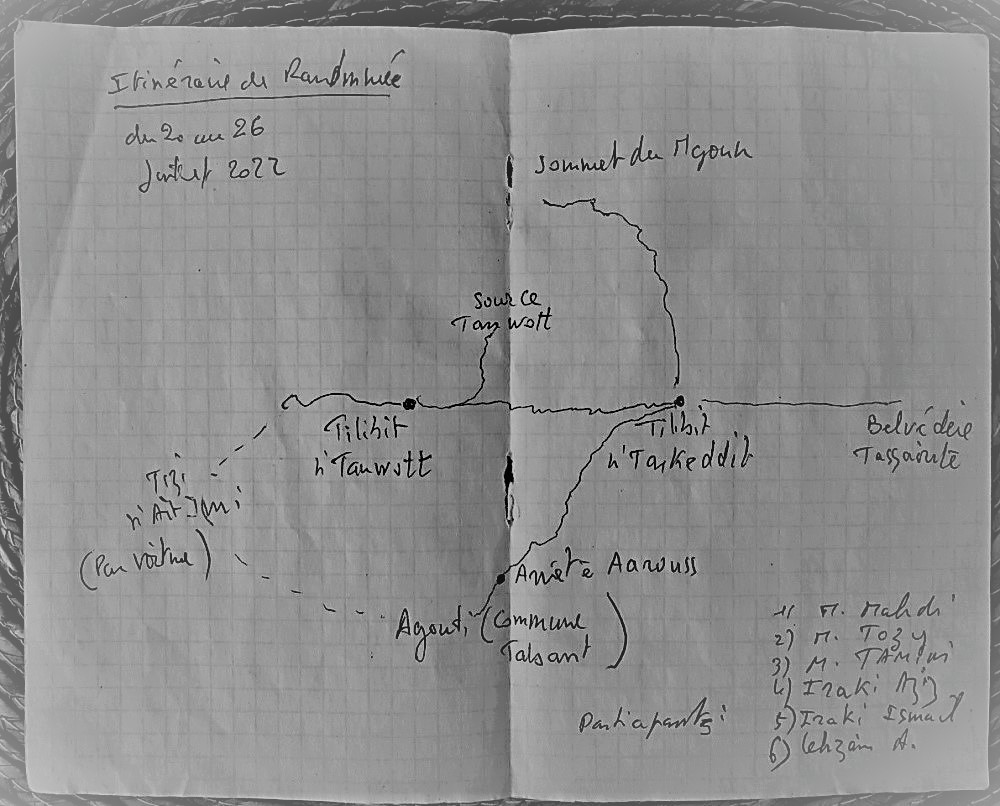 Itinéraire de Randonnée
du 20 au 26
Juillet 2022
Sommet du Mgoun
Source
Tanwott
Tilibit
n'Tanwott
Tilibit
n'Tarkeddit
Belvédère
Tassaouté
Tizi
n'Aït Imi
(Par voiture)
Arrêté Aarouss
Agouti (Commune
Tabant)
Participants :
1) M. Mahdi
2) M. Tozy
3) M. TAMIM
4) Iraki Aziz
5) Iraki Ismael
6) A.